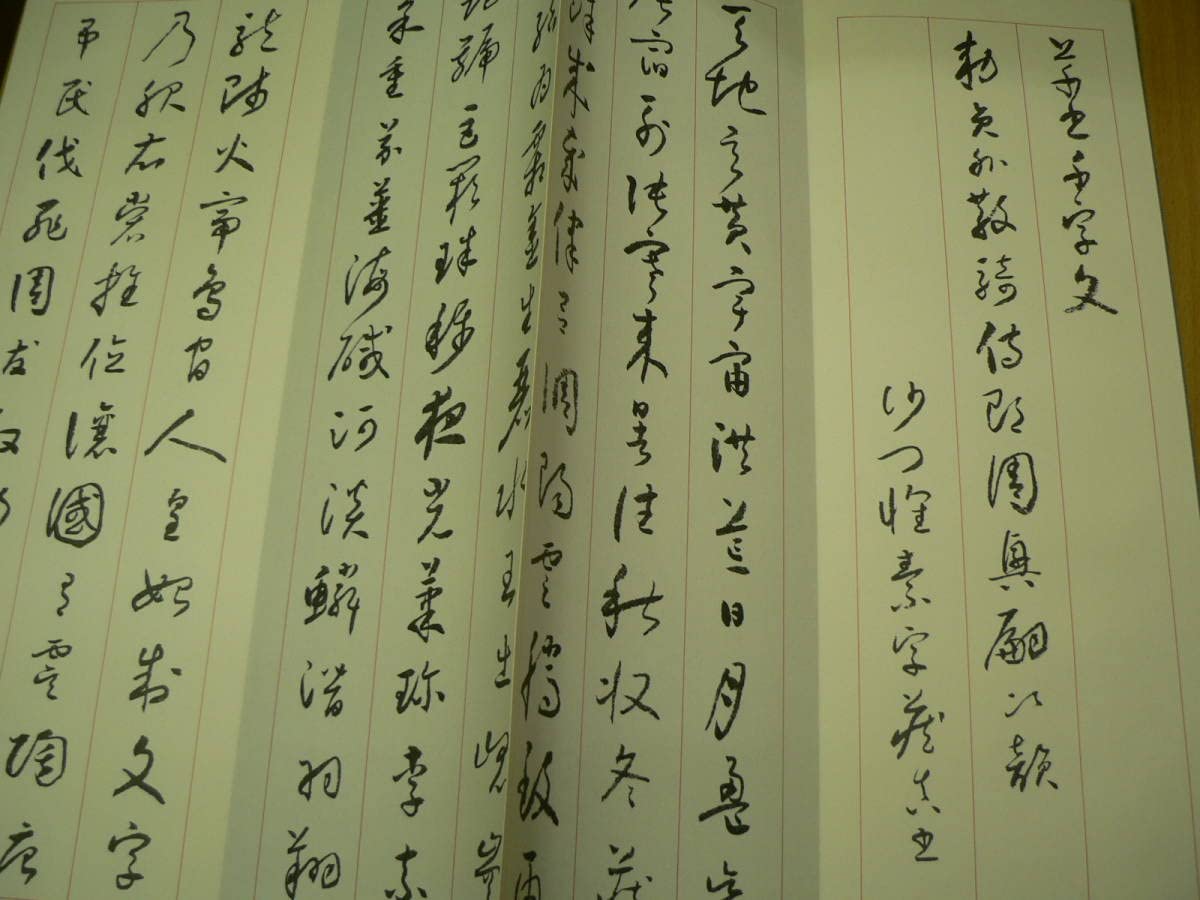 草書千字文
勅員外散騎侍郎周興嗣次韻
沙門懐素字蔵真書
天地玄黄宇宙洪荒日月盈昃
辰宿列張寒来暑往秋収冬蔵
餘成歳律呂調陽雲騰致雨
結為霜金生麗水玉出崑崗
劍號巨闕珠稱夜光菓珍李柰
菜重芥薑海鹹河淡鱗潜羽翔
龍師火帝鳥官人皇始制文字
乃服衣裳推位讓國有虞陶唐
弔民伐罪周發殷